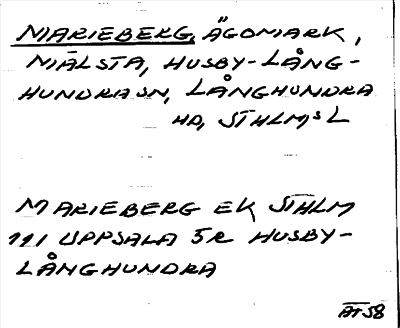 MARIEBERG, ÄGOMARK,
NIÄLSTA, HUSBY-LÅNG-
HUNDRA SN, LÅNGHUNDRA
HD, STHLMS L
MARIEBERG EK STHLM
111 UPPSALA 5R HUSBY-
LÅNGHUNDRA
ÄT 58